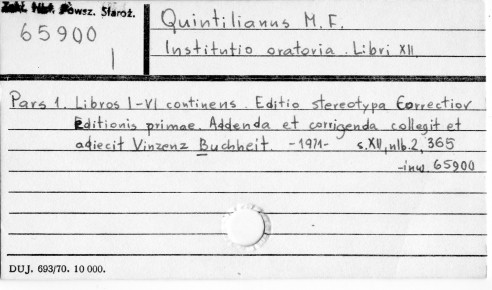 Zakł. Hist. Powsz. Staroż.
65900
I
Quintilianus M. F.
Institutio oratoria. Libri XII.
Pars 1. Libros I-VI continens. Editio stereotypa correctior
editionis primae. Addenda et corrigenda collegit et
adiecit Vinzenz Buchheit. -1971- s. XII, nlb. 2, 365
-inw. 65900
DUJ. 693/70. 10 000.